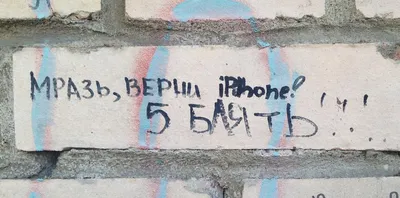 МРАЗЬ, ВЕРНИ iPhone!
5 БЛЯТЬ!!!